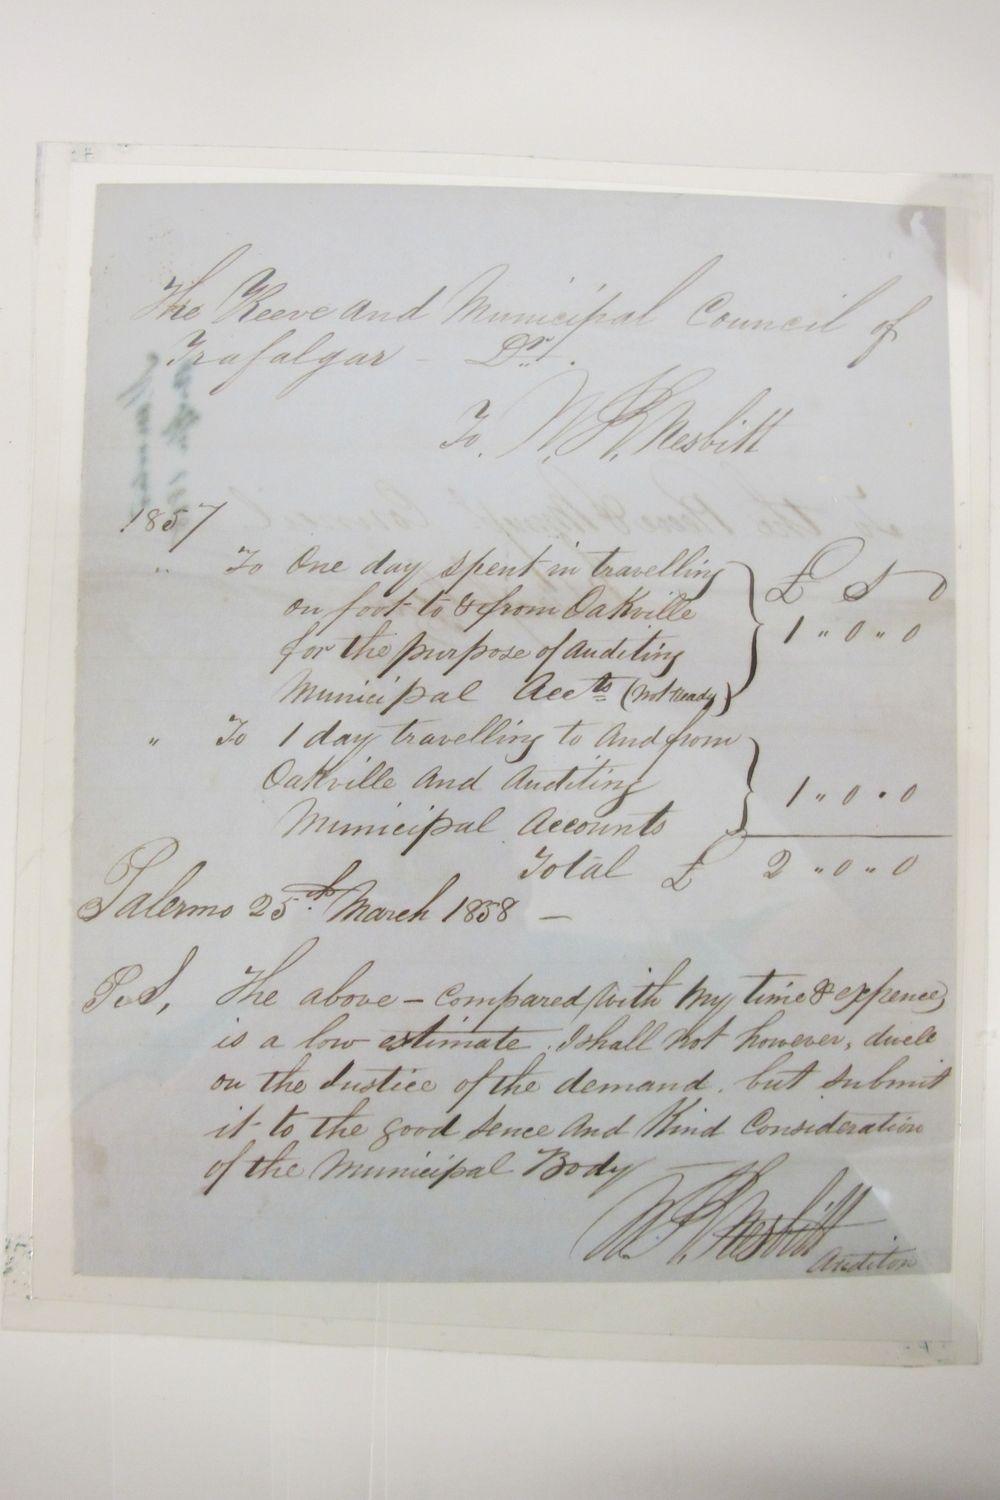 The Reeve and Municipal Council of
Trafalgar - Dr.
To. W. H. Nesbitt
1857
" To One day spent in travelling
on foot to & from Oakville
for the purpose of auditing
Municipal Accts (not ready)
£ S D
1 " 0 " 0
" To 1 day travelling to and from
Oakville and auditing
Municipal Accounts
1 " 0 " 0
Total £ 2 " 0 " 0
Palermo 25th March 1858 —
P.S, The above – compared with my time & expence,
is a low estimate. I shall not however, dwell
on the Justice of the demand. but submit
it to the good sence and Kind Consideration
of the Municipal Body
W. H. Nesbitt
Auditor